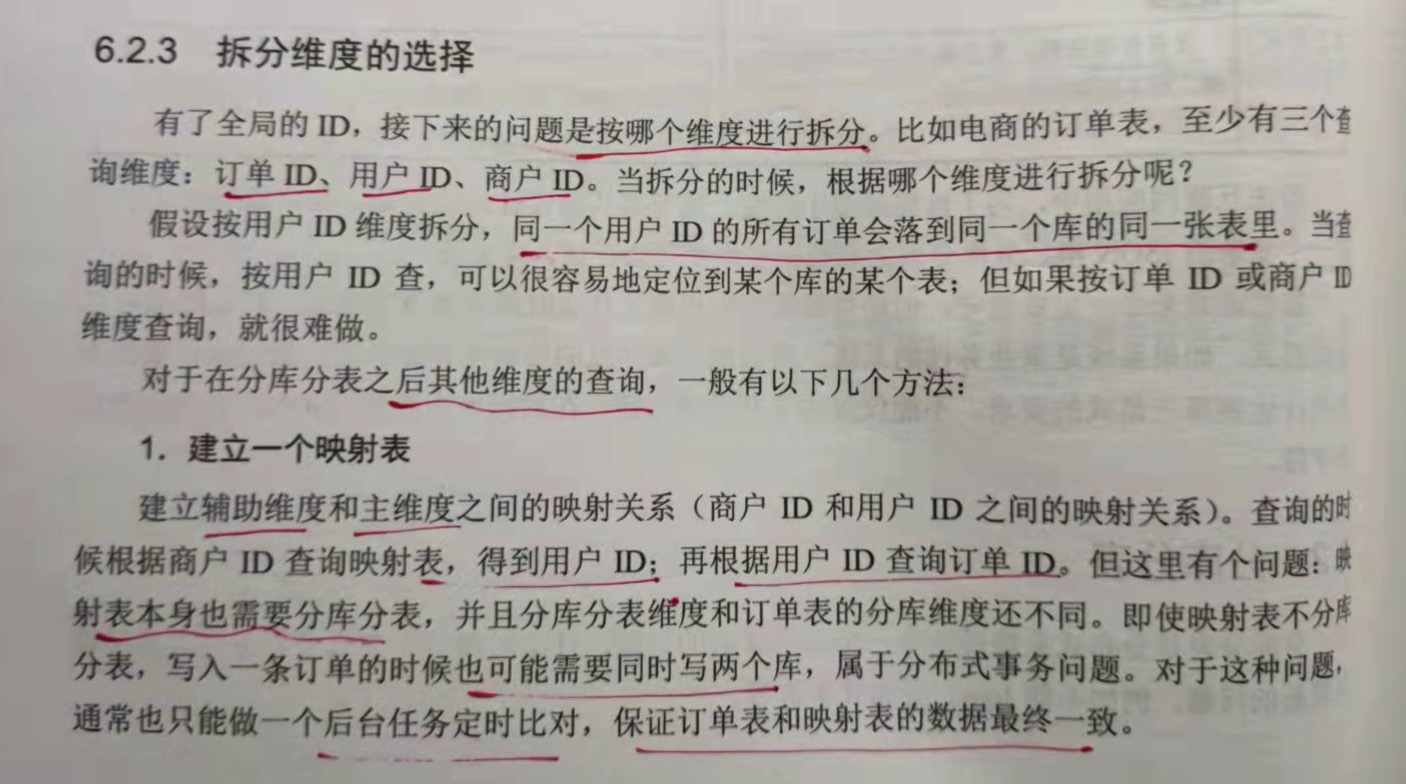 6.2.3 拆分维度的选择
有了全局的 ID，接下来的问题是按哪个维度进行拆分。比如电商的订单表，至少有三个查
询维度：订单 ID、用户 ID、商户 ID。当拆分的时候，根据哪个维度进行拆分呢？
假设按用户 ID 维度拆分，同一个用户 ID 的所有订单会落到同一个库的同一张表里。当查
询的时候，按用户 ID 查，可以很容易地定位到某个库的某个表；但如果按订单 ID 或商户 ID
维度查询，就很难做。
对于在分库分表之后其他维度的查询，一般有以下几个方法：
1．建立一个映射表
建立辅助维度和主维度之间的映射关系（商户 ID 和用户 ID 之间的映射关系）。查询的时
候根据商户 ID 查询映射表，得到用户 ID；再根据用户 ID 查询订单 ID。但这里有个问题：映
射表本身也需要分库分表，并且分库分表维度和订单表的分库维度还不同。即使映射表不分库
分表，写入一条订单的时候也可能需要同时写两个库，属于分布式事务问题。对于这种问题，
通常也只能做一个后台任务定时比对，保证订单表和映射表的数据最终一致。